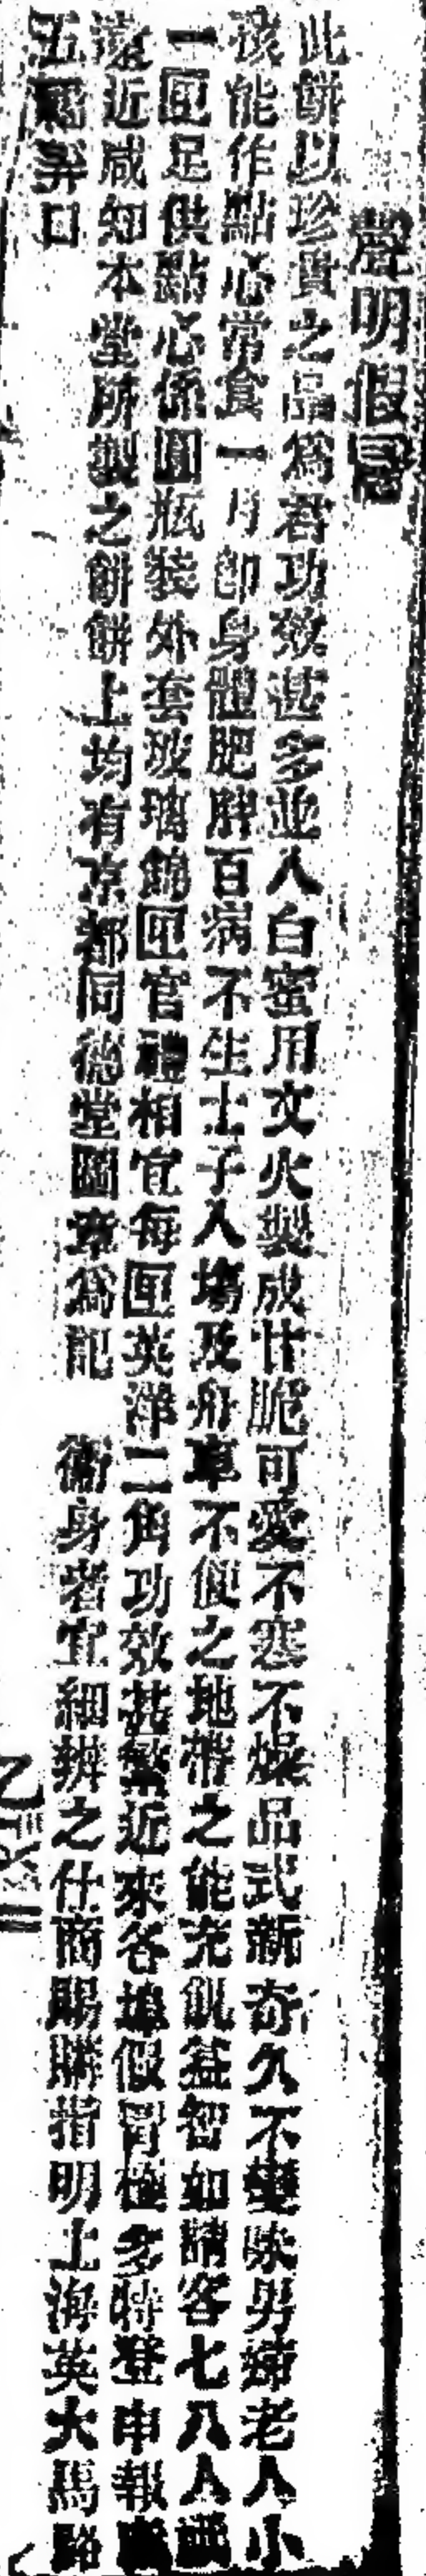 聲明假冒
此餅以珍貴之品爲君功效甚多並入白蜜用文火製成甘脆可愛不寒不燥品式新奇久不變味男婦老人小
孩能作點心常食一月卽身體肥胖百病不生士子入塲及舟車不便之地帶之能充飢益智如請客七八人
一匣足供點心係圓瓶裝外套玻璃錦匣官禮相宜每匣英洋二角功效甚繁近來各埠假冒極多特登申報
遠近咸知本堂所製之餅餅上均有京都同德堂圖章爲記 衞身者宜細辨之仕商賜購指明上海英大馬路
五福弄口